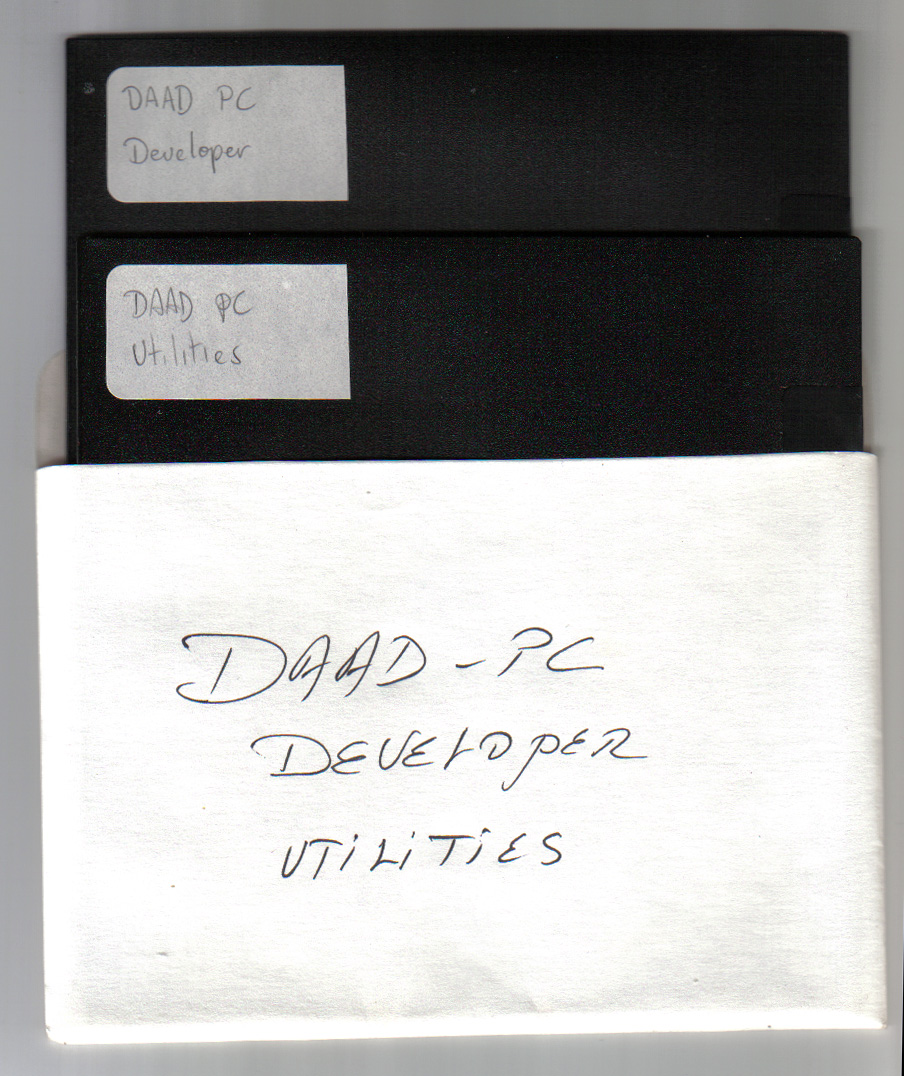 DAAD PC
Developer
DAAD PC
Utilities
DAAD - PC
DEVELOPER
UTiLiTiES